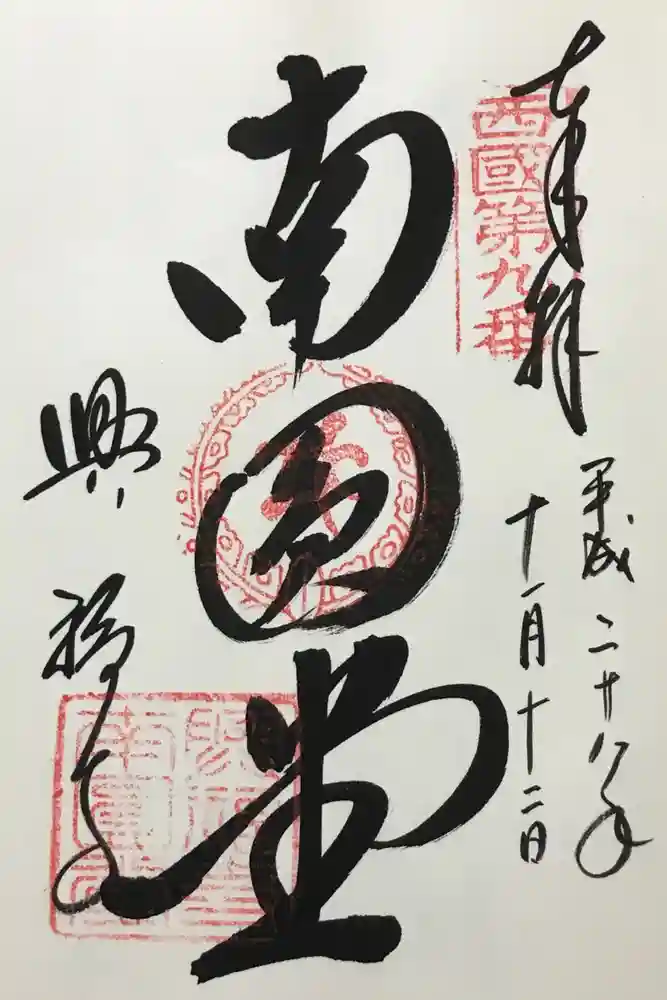 奉拝
西國第九番
平成二十八年
十一月十二日
南圓堂
興福寺